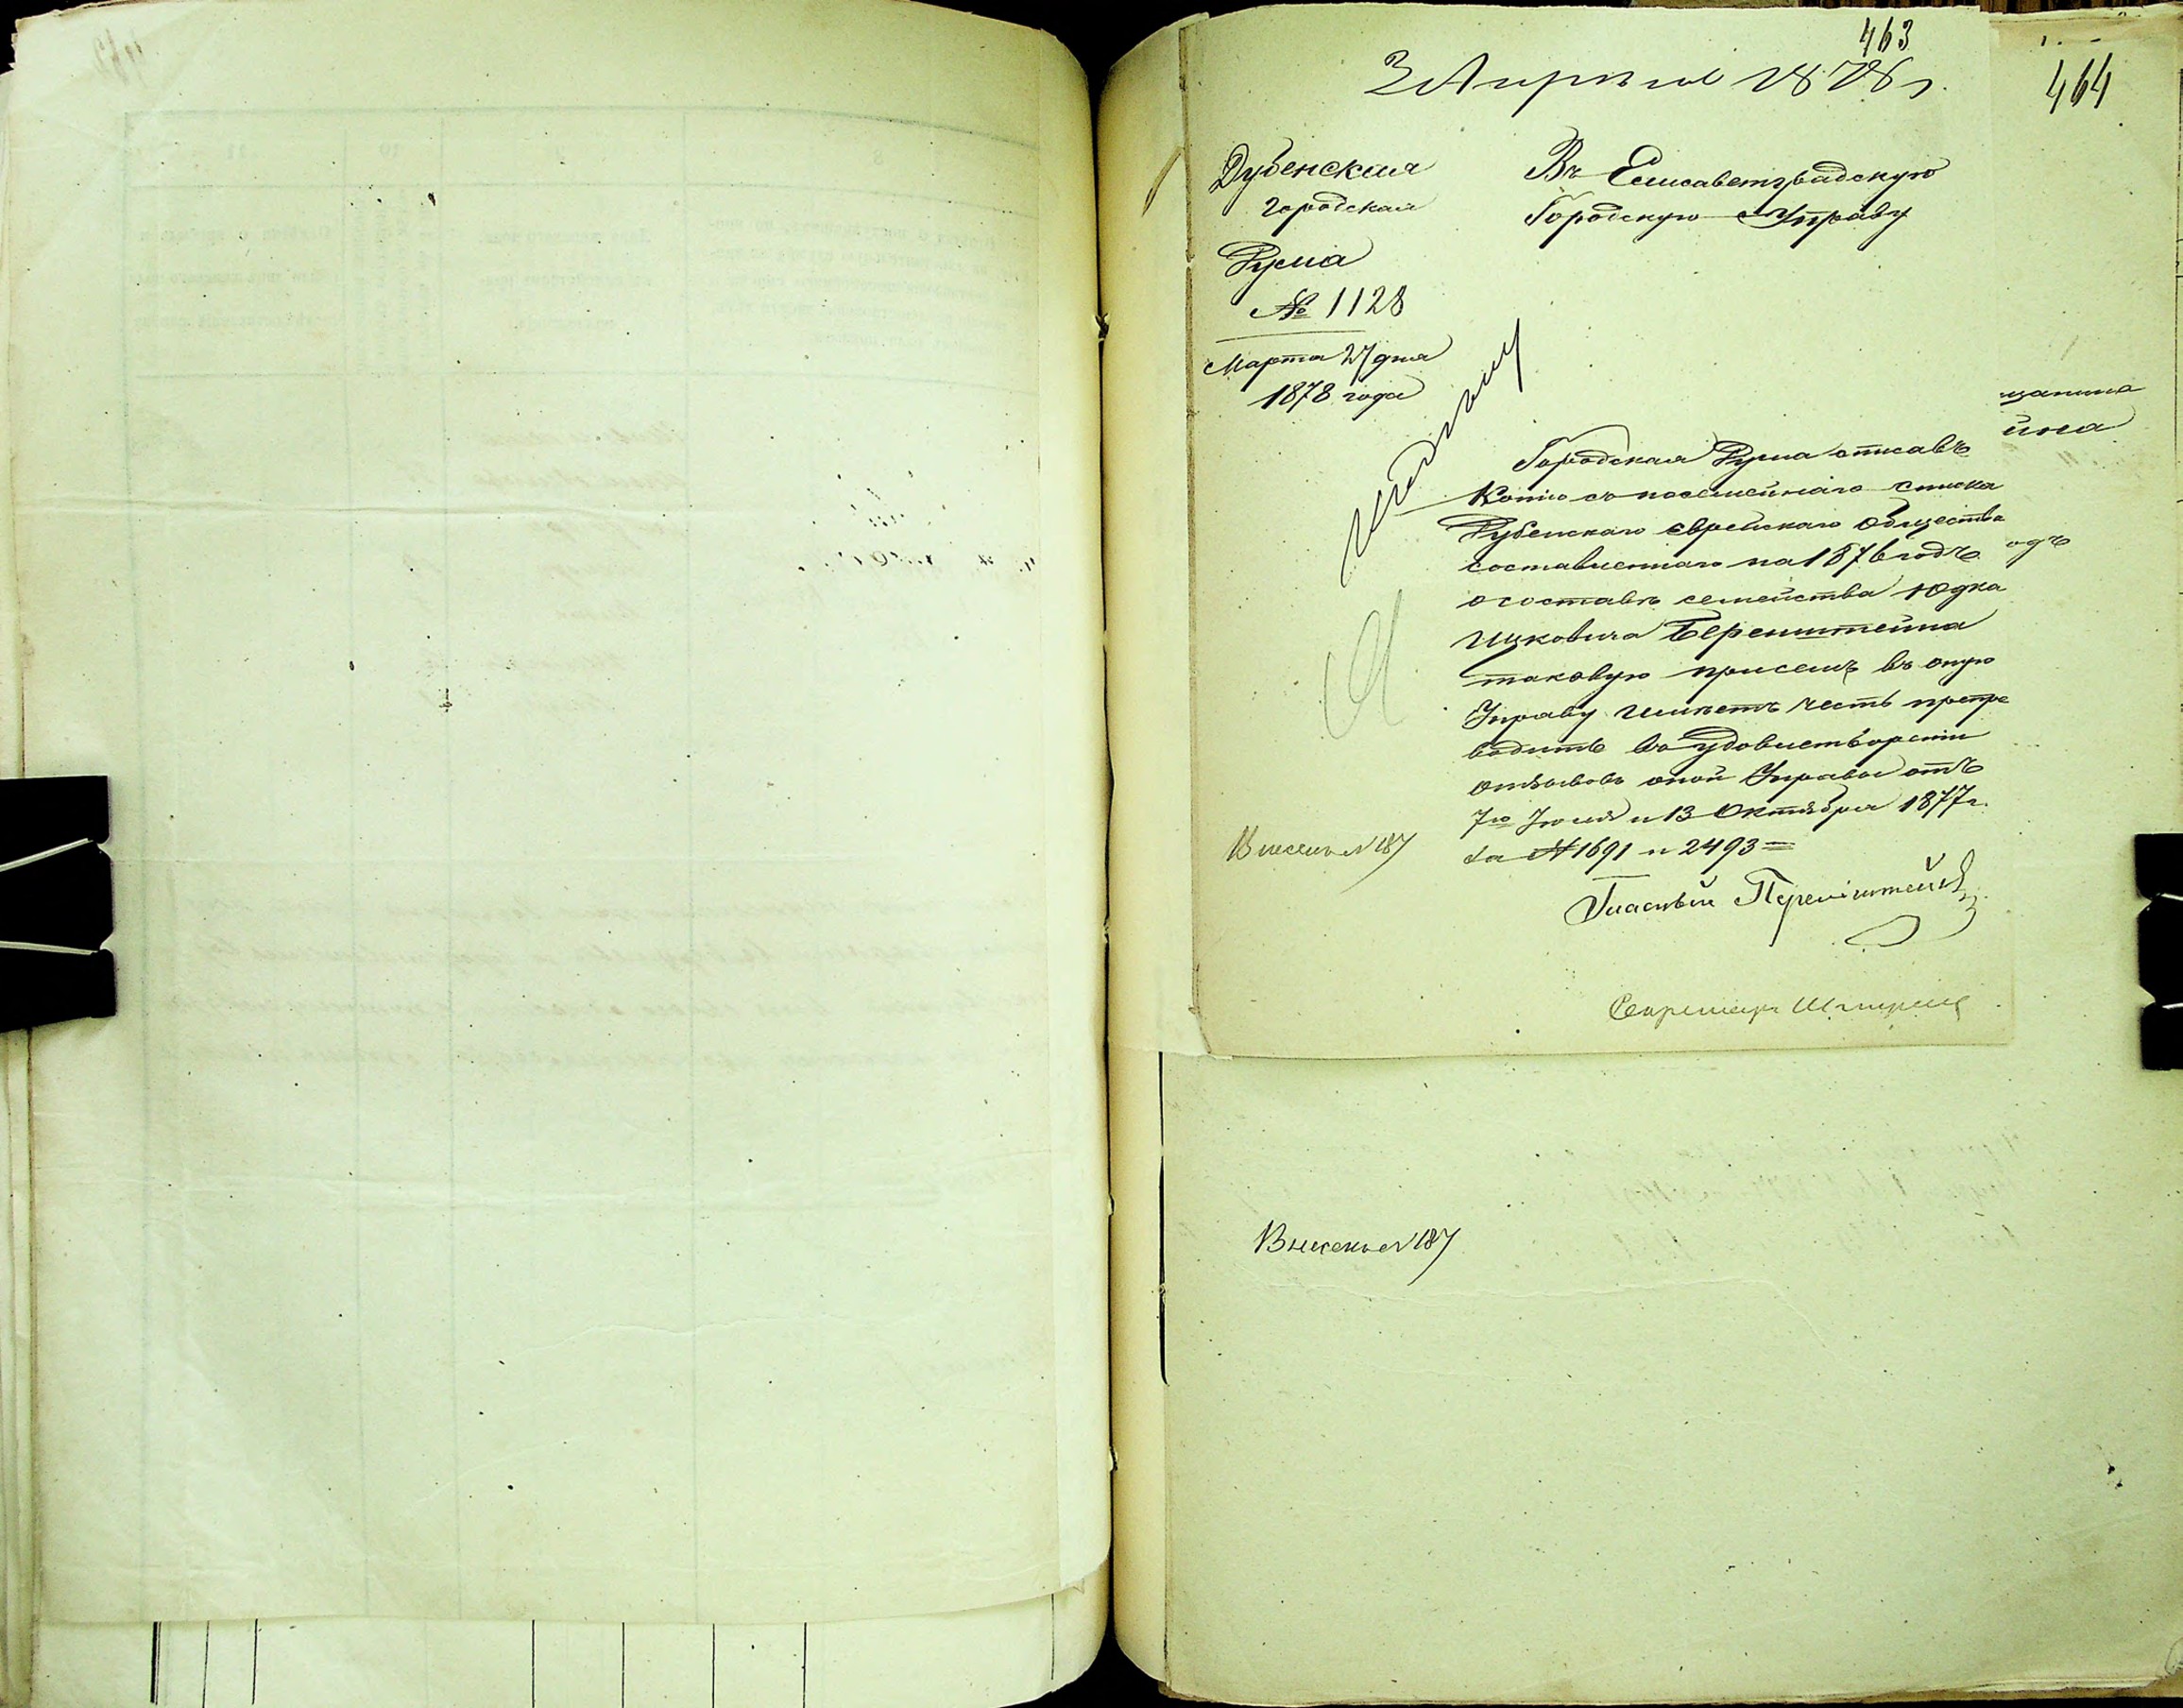 463
464
3 Апрѣля 1878 г.
Дубенская
городская
Дума
№ 1128
Марта 27 дня
1878 года
Въ Елисаветградскую
Городскую Управу
Городская Дума описавъ
Копію съ посемейнаго списка
Дубенскаго еврейскаго Общества
составленнаго на 1876 годъ
о составѣ семейства Юдка
Ицковича Беренштейна
таковую присемъ въ оную
Управу имѣетъ честь препро
водить въ удовлетвореніи
отзывовъ оной Управы отъ
7го Іюля и 13 Октября 1877 г.
за № 1691 и 2493 =
Гласный
Секретарь
щанина
йна
одъ
Внесень № 187
Внесень № 187